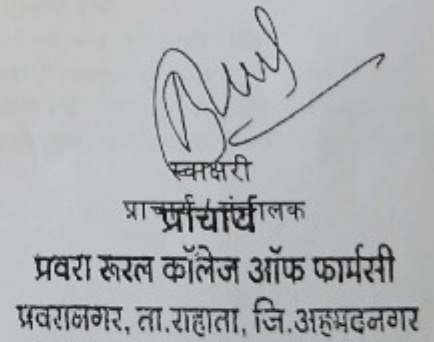 स्वाक्षरी
प्राचार्य / संचालक
प्राचार्य
प्रवरा रूरल कॉलेज ऑफ फार्मसी
प्रवरानगर, ता.राहाता, जि.अहमदनगर